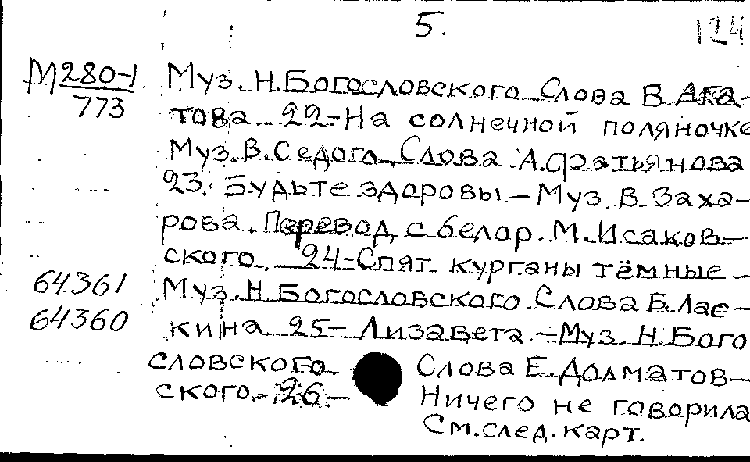 5.
124
М280-1
773
Муз. Н.Богословского Слова В Ака-
това 22-На солнечной поляночке
Муз. В. Седого, Слова А.Фатьянова
23. Будьте здоровы - Муз. В. Заха-
рова. Перевод с белор. М.Исаков-
ского. 24-Спят курганы тёмные -
64361
64360
Муз. Н Богословского. Слова Б.Лас-
кина 25- Лизавета. - Муз. Н. Бого
словского Слова Е.Долматов-
ского.- 26.- Ничего не говорила
См.след.карт.